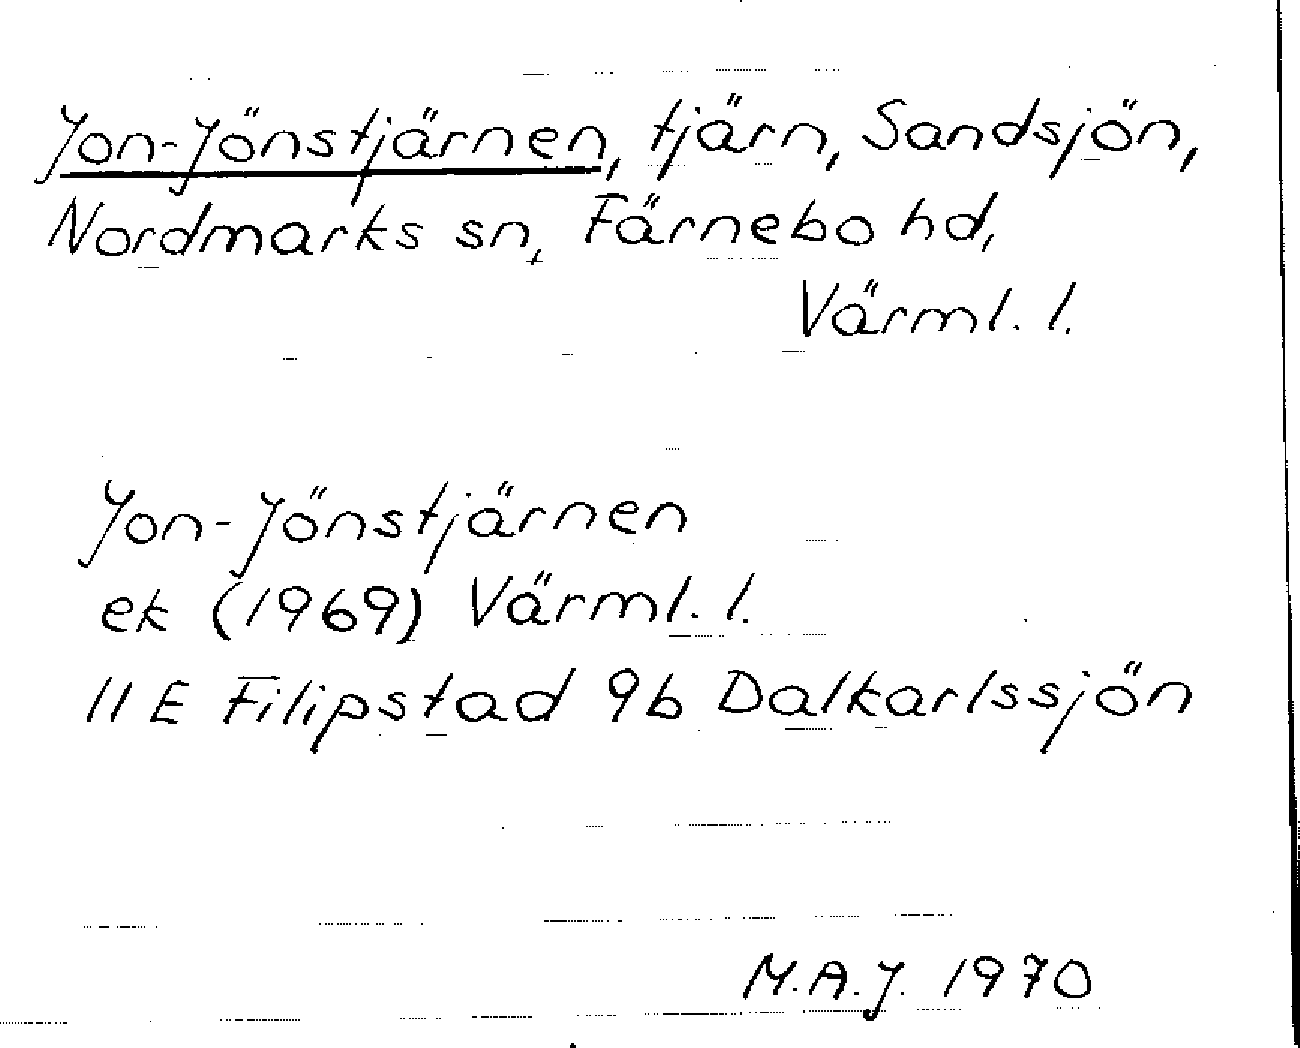 Jon-Jönstjärnen, tjärn, Sandsjön,
Nordmarks sn, Färnebo hd,
Värml. l.
Jon-Jönstjärnen
ek (1969) Värml. l.
11 E Filipstad 9b Dalkarlssjön
M.A.J. 1970